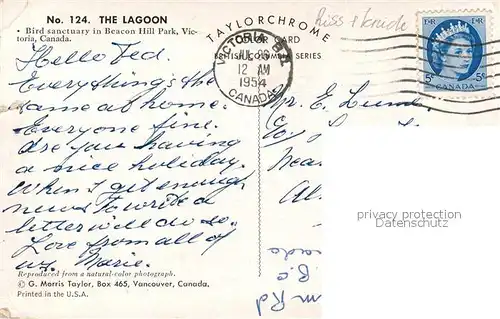 No. 124. THE LAGOON
• Bird sanctuary in Beacon Hill Park, Vic-
toria, Canada.
TAYLORCHROME
COLOR CARD
BRITISH COLUMBIA SERIES
VICTORIA B.C.
12 AM
1954
CANADA
5¢ 5¢
CANADA
Hello Ted.
Everything's the
same at home.
Everyone fine.
Are you having
a nice holiday.
When I get enough
news to write a
letter will do so.
Love from all of
us. Marie.
Mr. E.
privacy protection
Datenschutz
B.C.
Rd
Reproduced from a natural-color photograph.
© G. Morris Taylor, Box 465, Vancouver, Canada.
Printed in the U.S.A.